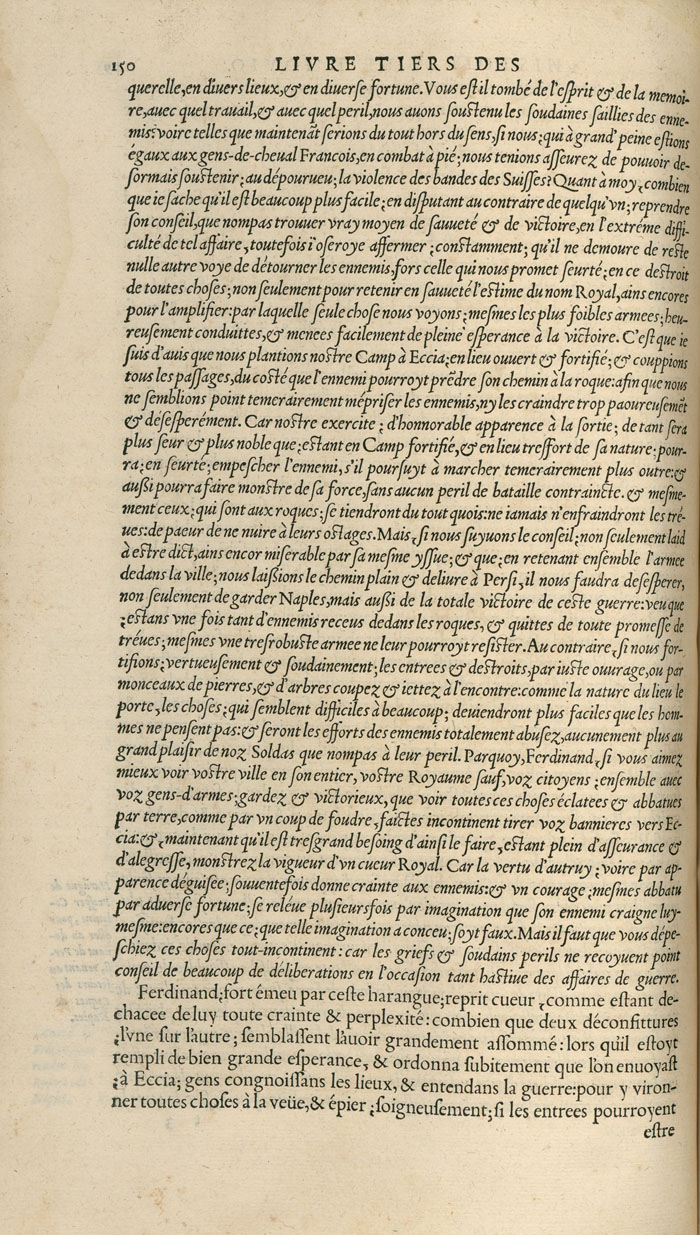 150 LIVRE TIERS DES
querelle,en diuers lieux,& en diuerse fortune.Vous est il tombé de l'esprit & de la memoi-
re,auec quel trauail,& auec quel peril,nous auons soustenu les soudaines saillies des enne-
mis:voire telles que maintenãt serions du tout hors du sens,si nous;qui à grand' peine estions
égaux aux gens-de-cheual Francois,en combat à pié;nous tenions asseurez de pouuoir de-
sormais soustenir;au dépourueu;la violence des bandes des Suisses? Quant à moy,combien
que ie sache qu'il est beaucoup plus facile;en disputant au contraire de quelqu'vn;reprendre
son conseil,que nompas trouuer vray moyen de sauueté & de victoire,en l'extréme diffi-
culté de tel affaire,toutefois i'oseroye affermer;constamment;qu'il ne demoure de reste
nulle autre voye de détourner les ennemis,fors celle qui nous promet seurté;en ce destroit
de toutes choses;non seulement pour retenir en sauueté l'estime du nom Royal,ains encores
pour l'amplifier:par laquelle seule chose nous voyons;mesmes les plus foibles armees;heu-
reusement conduittes,& menees facilement de pleine esperance à la victoire. C'est que ie
suis d'auis que nous plantions nostre Camp à Eccia;en lieu ouuert & fortifié;& couppions
tous les passages,du costé que l'ennemi pourroyt prẽdre son chemin à la roque:afin que nous
ne semblions point temerairement mépriser les ennemis,ny les craindre trop paoureusemẽt
& desesperément. Car nostre exercite ; d'honnorable apparence à la sortie; de tant sera
plus seur & plus noble que;estant en Camp fortifié,& en lieu tresfort de sa nature;pour-
ra;en seurte;empescher l'ennemi,s'il poursuyt à marcher temerairement plus outre:&
aussi pourra faire monstre de sa force,sans aucun peril de bataille contraincte. & mesme-
ment ceux;qui sont aux roques;se tiendront du tout quois:ne iamais n'enfraindront les tré-
ues:de paeur de ne nuire à leurs ostages. Mais,si nous suyuons le conseil;non seulement laid
à estre dict,ains encor miserable par sa mesme yssue;& que;en retenant ensemble l'armee
dedans la ville;nous laissions le chemin plain & deliure à Persi,il nous faudra desesperer,
non seulement de garder Naples,mais aussi de la totale victoire de ceste guerre:veu que
;estans vne fois tant d'ennemis receus dedans les roques, & quittes de toute promesse de
tréues;mesmes vne tresrobuste armee ne leur pourroyt resister. Au contraire,si nous for-
tifions;vertueusement & soudainement;les entrees & destroits,par iuste ouurage,ou par
monceaux de pierres,& d'arbres coupez & iettez à l'encontre:comme la nature du lieu le
porte,les choses;qui semblent difficiles à beaucoup; deuiendront plus faciles que les hom-
mes ne pensent pas:& seront les efforts des ennemis totalement abusez,aucunement plus au
grand plaisir de noz Soldas que nompas à leur peril. Parquoy,Ferdinand,si vous aimez
mieux voir vostre ville en son entier, vostre Royaume sauf,voz citoyens ;ensemble auec
voz gens-d'armes;gardez & victorieux, que voir toutes ces choses éclatees & abbatues
par terre,comme par vn coup de foudre,faictes incontinent tirer voz bannieres vers Ec-
cia:& ,maintenant qu'il est tresgrand besoing d'ainsi le faire,estant plein d'asseurance &
d'alegresse, monstrez la vigueur d'vn cueur Royal. Car la vertu d'autruy ;voire par ap-
parence déguisee;souuentefois donne crainte aux ennemis:& vn courage ;mesmes abbatu
par aduerse fortune;se reléue plusieursfois par imagination que son ennemi craigne luy-
mesme:encores que ce;que telle imagination a conceu;soyt faux. Mais il faut que vous dépe-
schiez ces choses tout-incontinent : car les griefs & soudains perils ne recoyuent point
conseil de beaucoup de déliberations en l'occasion tant hastiue des affaires de guerre.
Ferdinand;fort émeu par ceste harangue;reprit cueur ,comme estant de-
chacee de luy toute crainte & perplexité : combien que deux déconfittures
;l'vne sur l'autre ; semblassent l'auoir grandement assommé : lors qu'il estoyt
rempli de bien grande esperance, & ordonna subitement que l'on enuoyast
;à Eccia; gens congnoissans les lieux, & entendans la guerre:pour y viron-
ner toutes choses à la veüe,& épier ;soigneusement;si les entrees pourroyent
estre